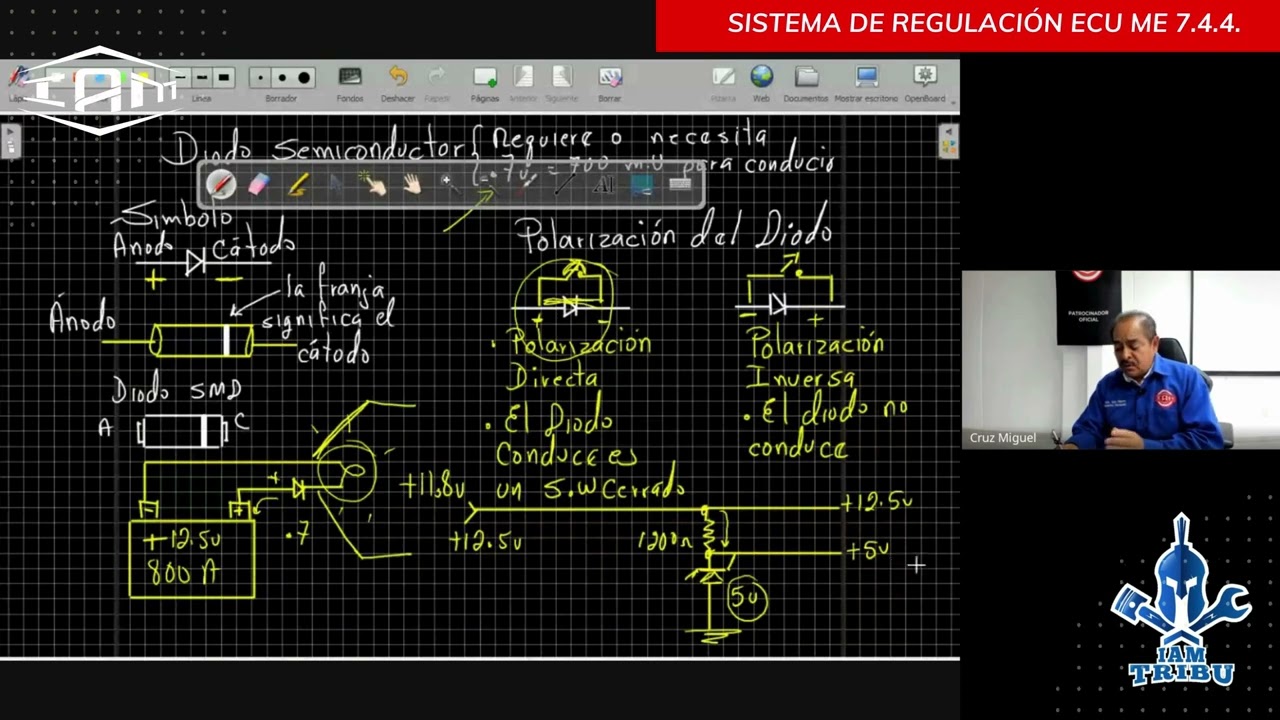 SISTEMA DE REGULACIÓN ECU ME 7.4.4.
IAM
Línea
Borrador
Fondos
Deshacer
Páginas
Anterior
Siguiente
Borrar
Pizarra
Web
Documentos
Mostrar escritorio
OpenBoard
Diodo Semiconductor { Requiere o necesita
.7v = 700 mv para conducir
Simbolo
Anodo Cátodo
+ -
Polarización del Diodo
la franja
significa el
cátodo
Ánodo
Diodo SMD
A C
+ -
- +
. Polarización
Directa
. El Diodo
Conduce es
un S.W Cerrado
Polarización
Inversa
. El diodo no
conduce
- +
+
+12.5v
800 A
.7
+11.8v
+12.5v
1200Ω
+12.5v
+5v
5v
PATROCINADOR
OFICIAL
Cruz Miguel
IAM
TRIBU